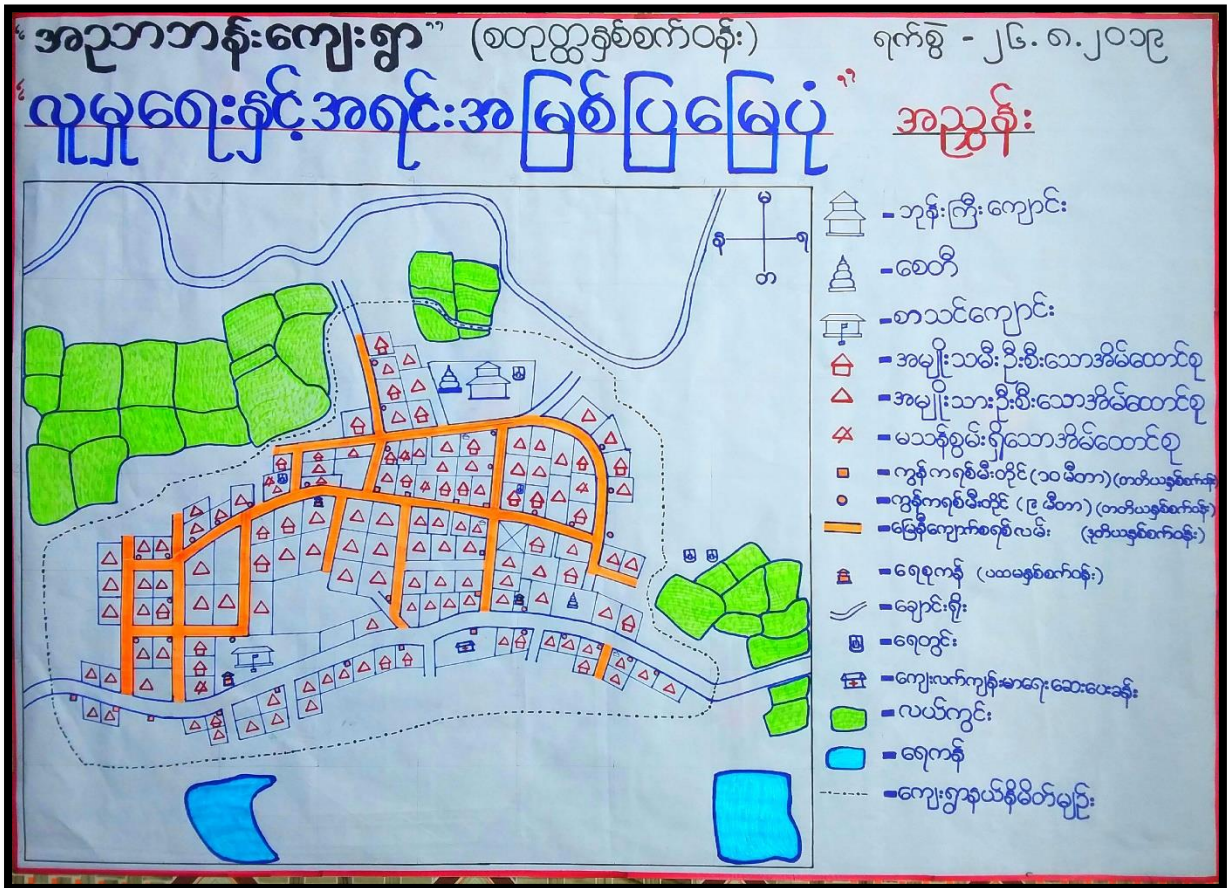 "အညာဘန်းကျေးရွာ" (စတုတ္ထနှစ်စက်ဝန်း) ရက်စွဲ - ၂၆.၈.၂၀၁၉
"လူမှုရေးနှင့်အရင်းအမြစ်ပြမြေပုံ"
အညွှန်း
မ
န ရ
တ
- ဘုန်းကြီးကျောင်း
- စေတီ
- စာသင်ကျောင်း
- အမျိုးသမီးဦးစီးသောအိမ်ထောင်စု
- အမျိုးသားဦးစီးသောအိမ်ထောင်စု
- မသန်စွမ်းရှိသောအိမ်ထောင်စု
- ကွန်ကရစ်မီးတိုင် (၁၀ မီတာ) (တတိယနှစ်စက်ဝန်း)
- ကွန်ကရစ်မီးတိုင် (၉ မီတာ) (တတိယနှစ်စက်ဝန်း)
- မြေနီကျောက်စရစ်လမ်း (ဒုတိယနှစ်စက်ဝန်း)
- ရေစုကန် (ပထမနှစ်စက်ဝန်း)
- ချောင်းရိုး
- ရေတွင်း
- ကျေးလက်ကျန်းမာရေးဆေးပေးခန်း
- လယ်ကွင်း
- ရေကန်
- ကျေးရွာနယ်နိမိတ်မျဉ်း